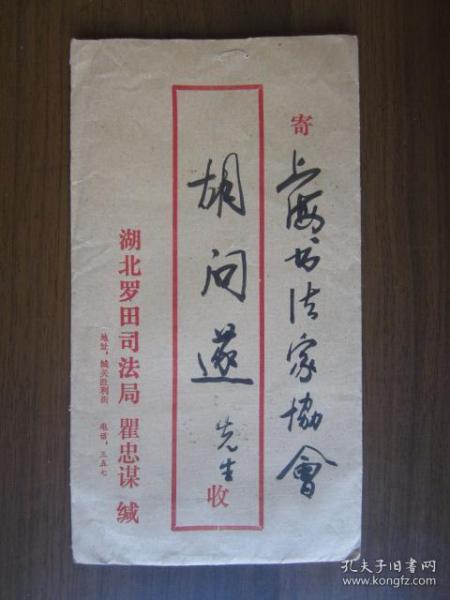 寄 上海书法家協會
胡问遂先生收
湖北罗田司法局 瞿忠谋 缄
地址：城关胜利街 电话：三五七
孔夫子旧书网
www.kongfz.com